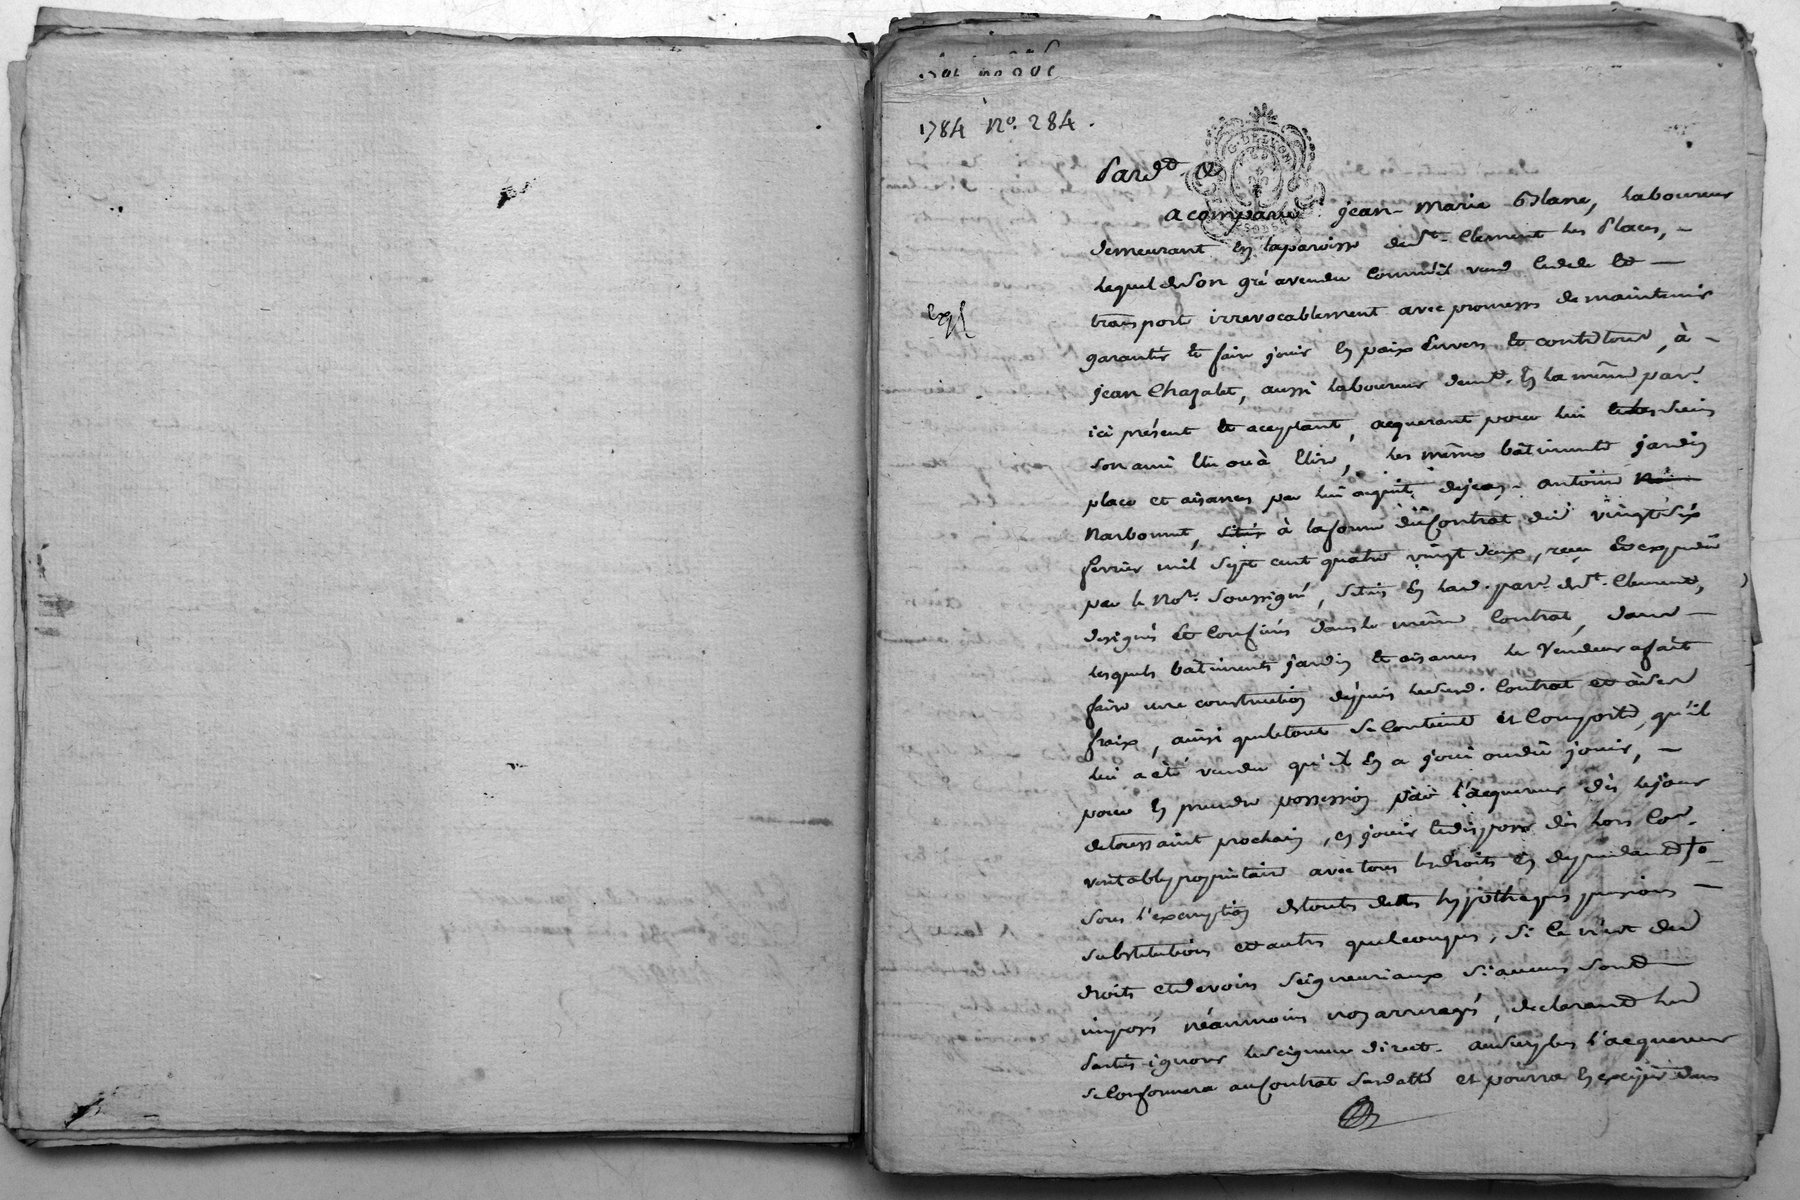 1784 No. 284.
Pard.t &
G. DE LYON
a comparu jean-marie Blanc, laboureur
demeurant en laparoisse de St. Clement les Places, -
lequel deson gré avendu Comm'il vend Cede &
transporte irrevocablement avec promesses demaintenir
Exp.
garantir & faire jouir en paix Envers & contretous, à -
jean Chazalet, aussi laboureur demt. En la même parse.
ici présent & acceptant, acquerant pour lui & les siens
son ami Elu ou à Elire, les mêmes bâtiments jardin
place et aisances par lui acquis dejean-antoine
Narbonnet, situés à la forme duContrat du vingt six
fevrier mil sept cent quatre vingt deux, reçu & expedié
par le No.re soussigné, situés En lad. parse. de St. Clement,
designés & Confinés dansle même Contrat, dans -
lesquels bâtiments jardin & aisances le Vendeur afait
faire une construction depuis lesusd. Contrat et à ses
fraix, ainsi queletout se Contient et Comporte, qu'il
lui a été vendu qu'il En a joui oudû jouir, -
pour En prendre possession par l'acquereur dès lejour
detoussaint prochain, en jouir & disposer dès lors Com.
veritablepropriétaire avectous lesdroits En dependants
sous l'exemption detoutes dettes hypotheques pensions -
substitutions et autres quelconques, si Ce n'est des
droits etdevoirs seigneuriaux si aucuns sont
imposés néanmoins non arreragés, declarant les
Parties ignorer leseigneur direct. ausurplus l'acquereur
seConformera auContrat susdatté et pourra En exiger dans